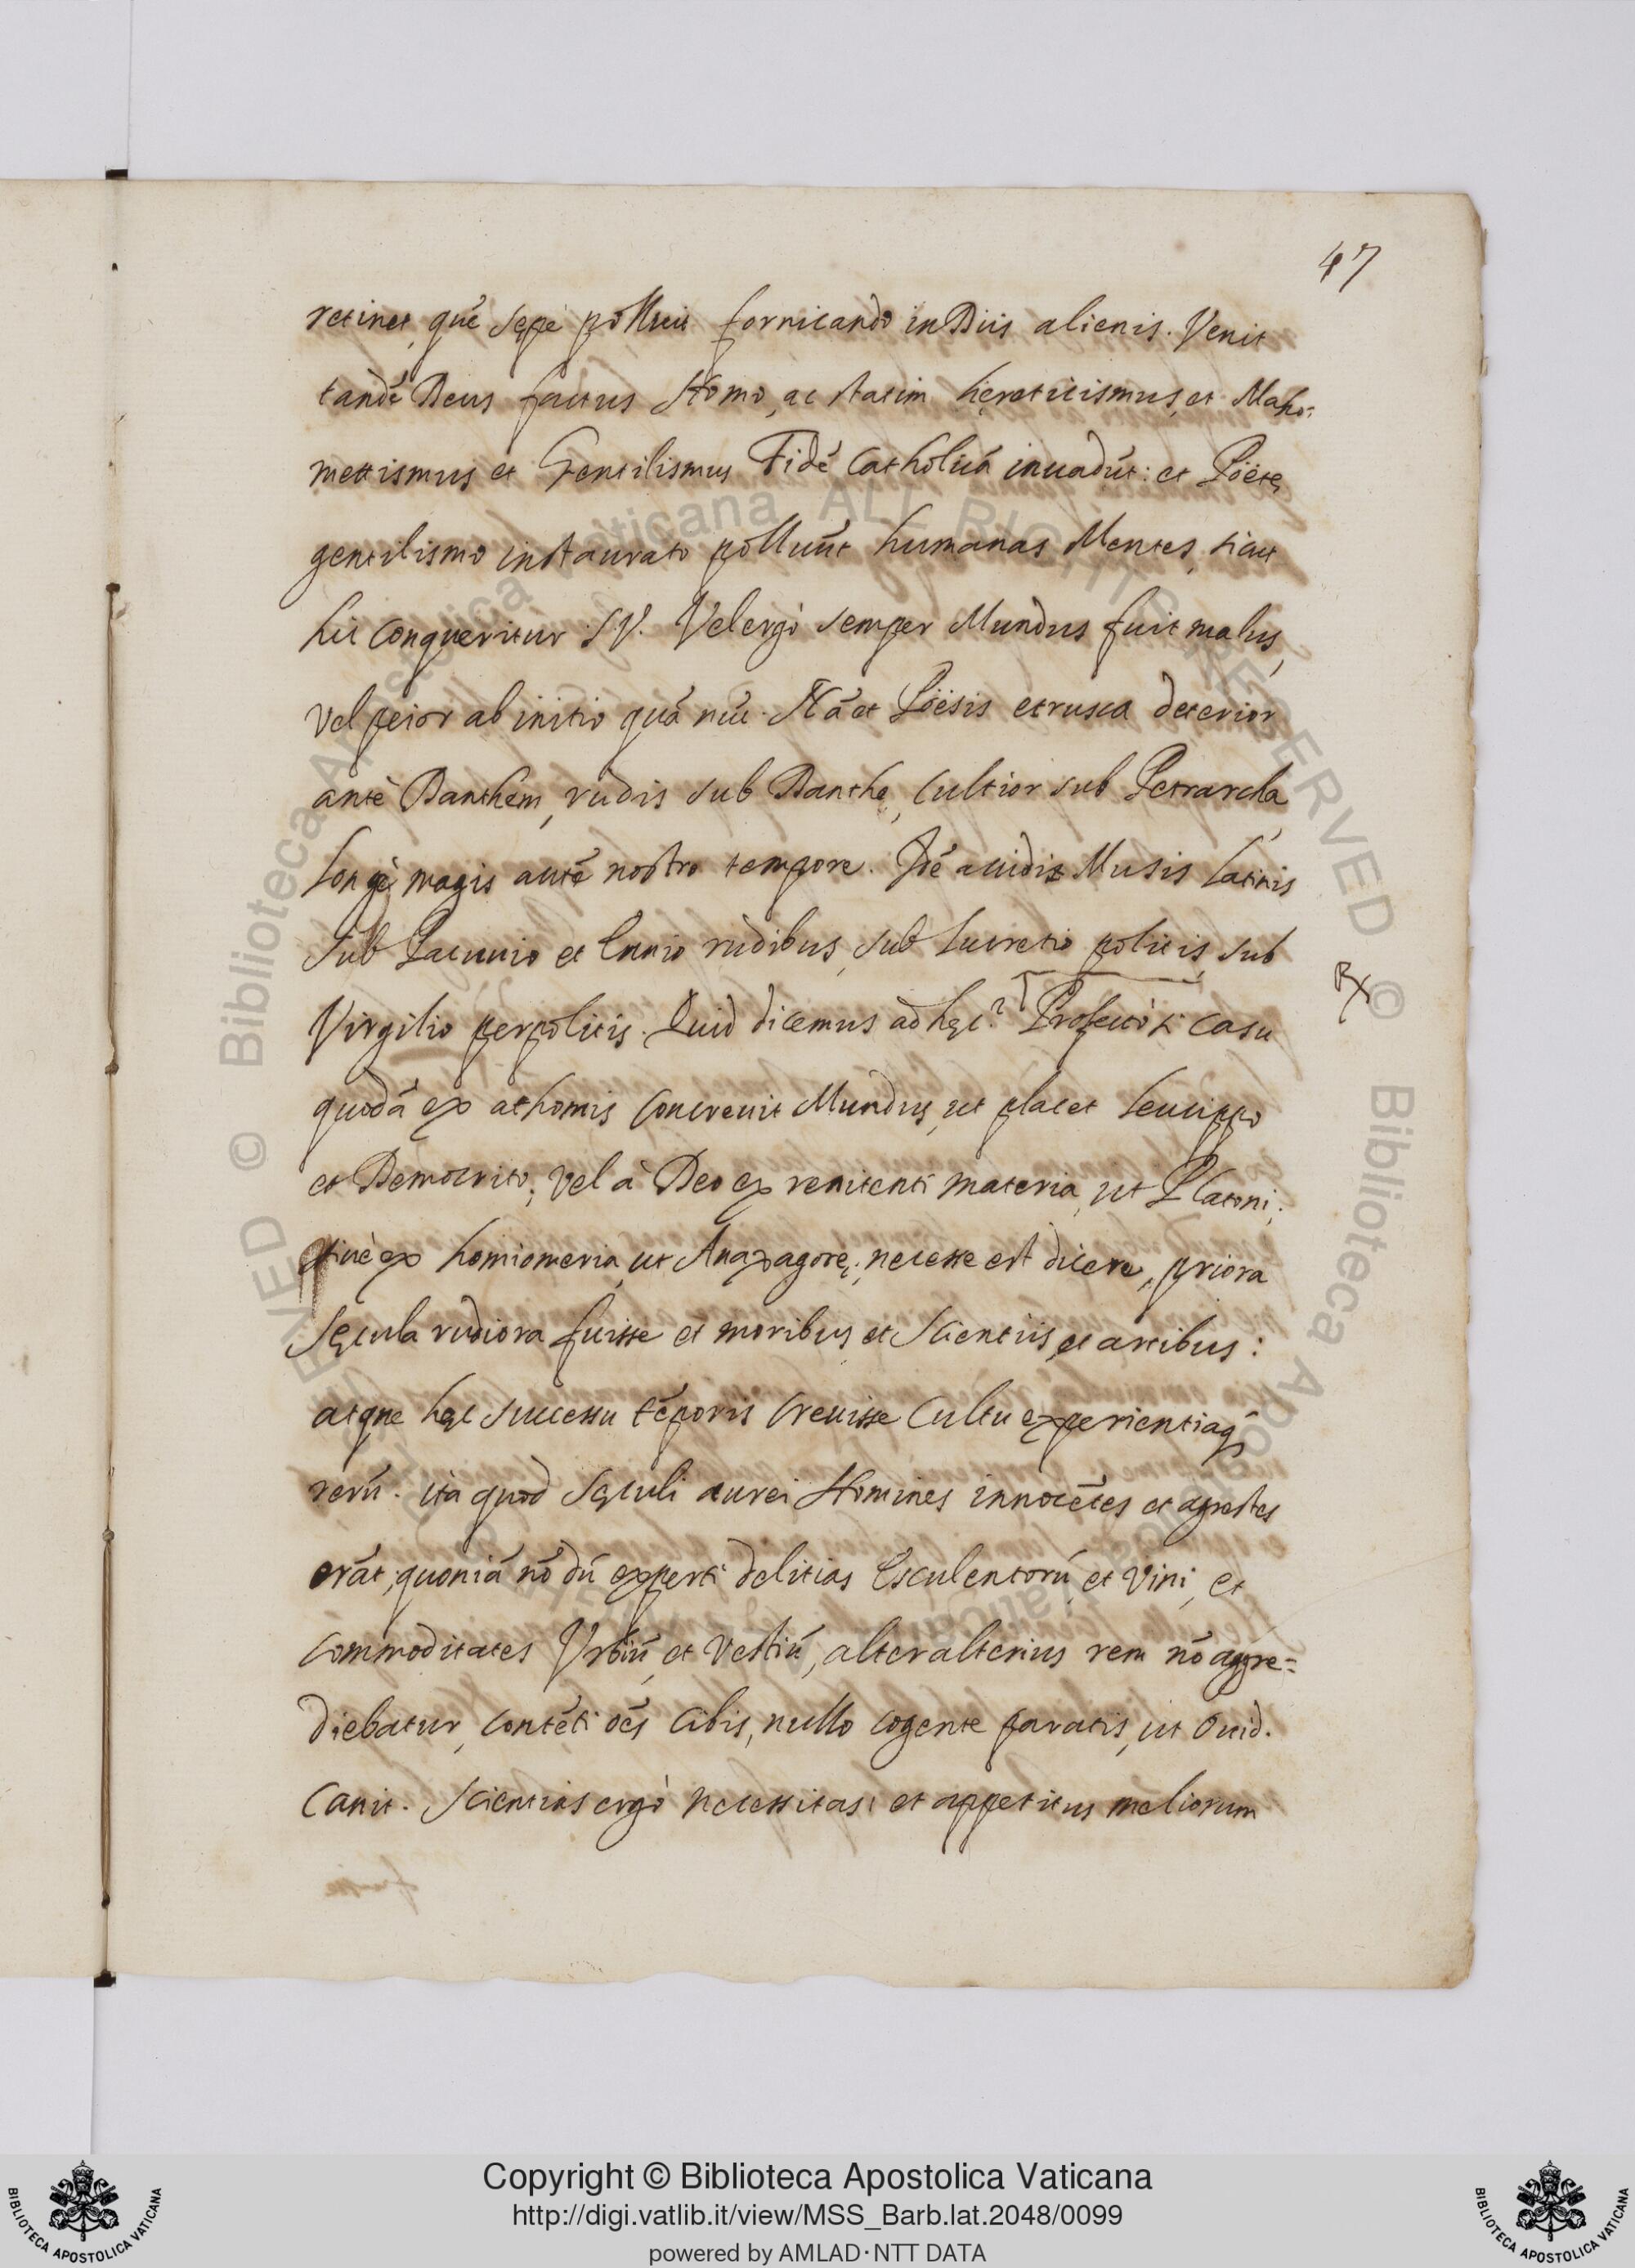 47
retinet, quē sępè polluit fornicando in Diis alienis. Venit
tandē Deus factus Homo, ac statim hęreticismus, et Maho-
mettismus et Gentilismus Fidē Catholicā inuadūt: et Poëtę
gentilismo instaurato polluūt humanas Mentes, sicut
hic conqueritur S.V. Vel ergò semper Mundus fuit malus,
vel peior ab initio quā nūc. Nā et Poësis etrusca deterior
antè Danthem, rudis sub Danthe, cultior sub Petrarcha,
longè magis autē nostro tempore. Idē accidit Musis Latinis
sub Pacuuio et Ennio rudibus, sub Lucretio politis, sub
Virgilio perpolitis. Quid dicemus ad hęc? Profectò si casu
quodā ex athomis concreuit Mundus, ut placet Leucippo
et Democrito; vel à Deo ex renitenti materia, ut Platoni;
siuè ex homiomeria, ut Anaxagorę; necesse est dicere, priora
Sęcula rudiora fuisse et moribus et Scientiis, et artibus:
atque hęc successu tēporis creuisse cultu experientiaq́
rerū. ita quod Sęculi aurei Homines innocētes et agrestes
erāt, quoniā nō dū experti delitias Esculentorū, et Vini, et
commoditates Vrbiū, et Vestiū, alter alterius rem nō aggre=
diebatur, contēti oēs cibis, nullo cogente paratis, ut Ouid.
canit. Scientias ergò necessitas, et appetitus meliorum
Rx
Biblioteca Apostolica Vaticana ALL RIGHTS RESERVED ©
Copyright © Biblioteca Apostolica Vaticana
http://digi.vatlib.it/view/MSS_Barb.lat.2048/0099
powered by AMLAD·NTT DATA
BIBLIOTECA APOSTOLICA VATICANA
BIBLIOTECA APOSTOLICA VATICANA